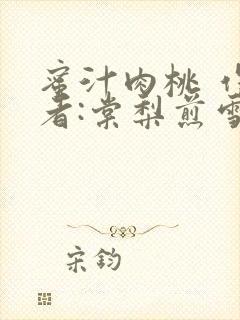 蜜汁肉桃 
者:棠梨煎雪
宋钧